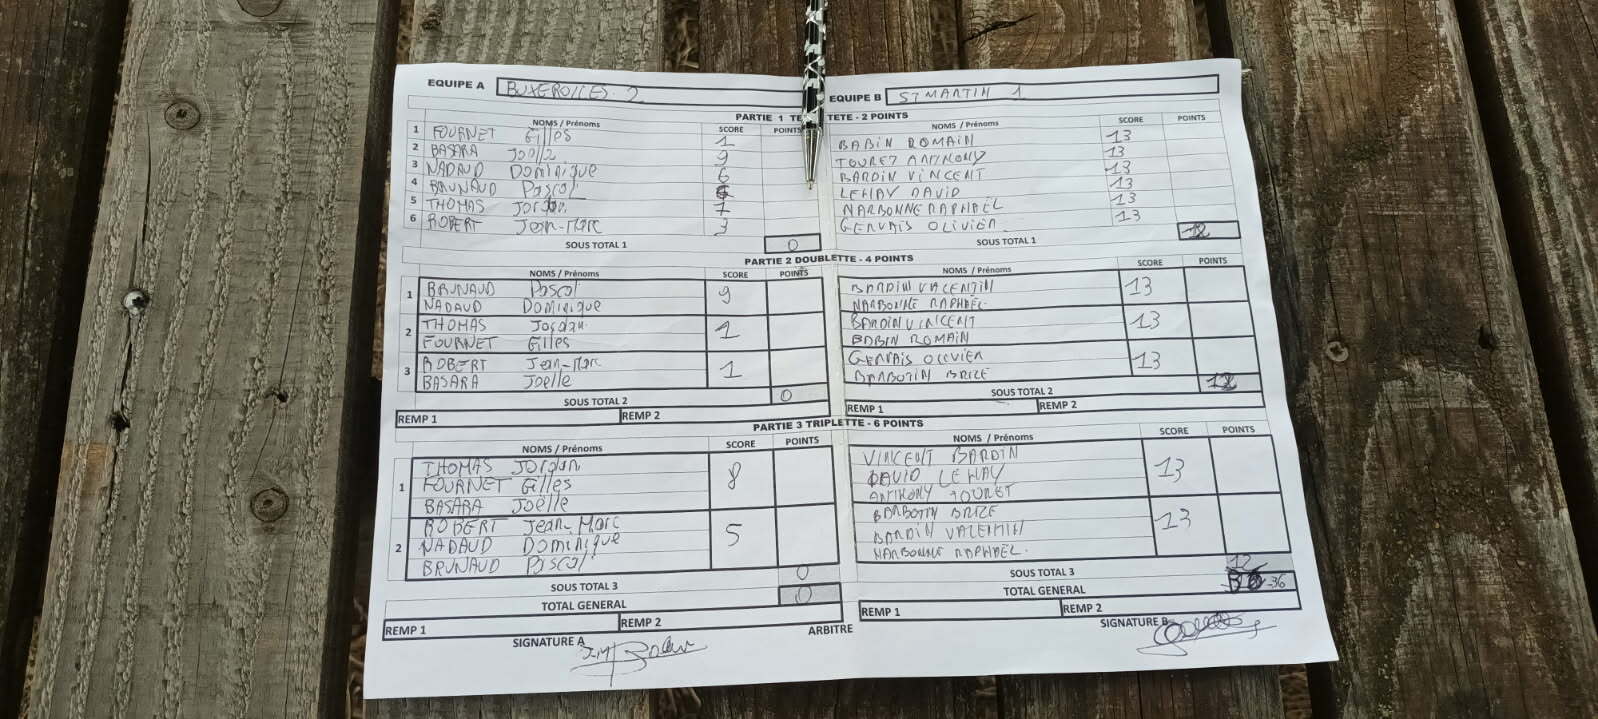 EQUIPE A BUXEROLLES. 2 EQUIPE B ST MARTIN 1
PARTIE 1 TE TETE - 2 POINTS
NOMS / Prénoms SCORE POINTS NOMS / Prénoms SCORE POINTS
1 FOURNET Gilles 1 BABIN ROMAIN 13
2 BASARA Joëlle 9 TOURET ANTHONY 13
3 NADAUD Dominique 6 BARDIN VINCENT 13
4 BRUNAUD Pascal LEHAY DAVID 13
5 THOMAS Jordan 7 NARBONNE RAPHAËL 13
6 ROBERT Jean-Marc 3 GERVAIS OLIVIER 13
SOUS TOTAL 1 0 SOUS TOTAL 1 12
PARTIE 2 DOUBLETTE - 4 POINTS
NOMS / Prénoms SCORE POINTS NOMS / Prénoms SCORE POINTS
1 BRUNAUD Pascal 9 BARDIN VALENTIN 13
NADAUD Dominique NARBONNE RAPHAËL
2 THOMAS Jordan 1 BARDIN VINCENT 13
FOURNET Gilles BABIN ROMAIN
3 ROBERT Jean-Marc 1 GERVAIS OLIVIER 13
BASARA Joëlle BARBOTIN BRIZE
SOUS TOTAL 2 0 SOUS TOTAL 2 12
REMP 1 REMP 2 REMP 1 REMP 2
PARTIE 3 TRIPLETTE - 6 POINTS
NOMS / Prénoms SCORE POINTS NOMS / Prénoms SCORE POINTS
1 THOMAS Jordan 8 VINCENT BARDIN 13
FOURNET Gilles DAVID LEHAY
BASARA Joëlle ANTHONY TOURET
2 ROBERT Jean-Marc 5 BARBOTIN BRIZE 13
NADAUD Dominique BARDIN VALENTIN
BRUNAUD Pascal NARBONNE RAPHAËL.
SOUS TOTAL 3 0 SOUS TOTAL 3 12
TOTAL GENERAL 0 TOTAL GENERAL 36
REMP 1 REMP 2 REMP 1 REMP 2
SIGNATURE A ARBITRE SIGNATURE B